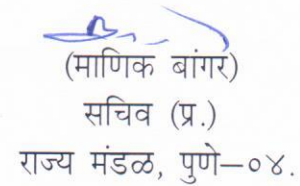 (माणिक बांगर)
सचिव (प्र.)
राज्य मंडळ, पुणे–०४.